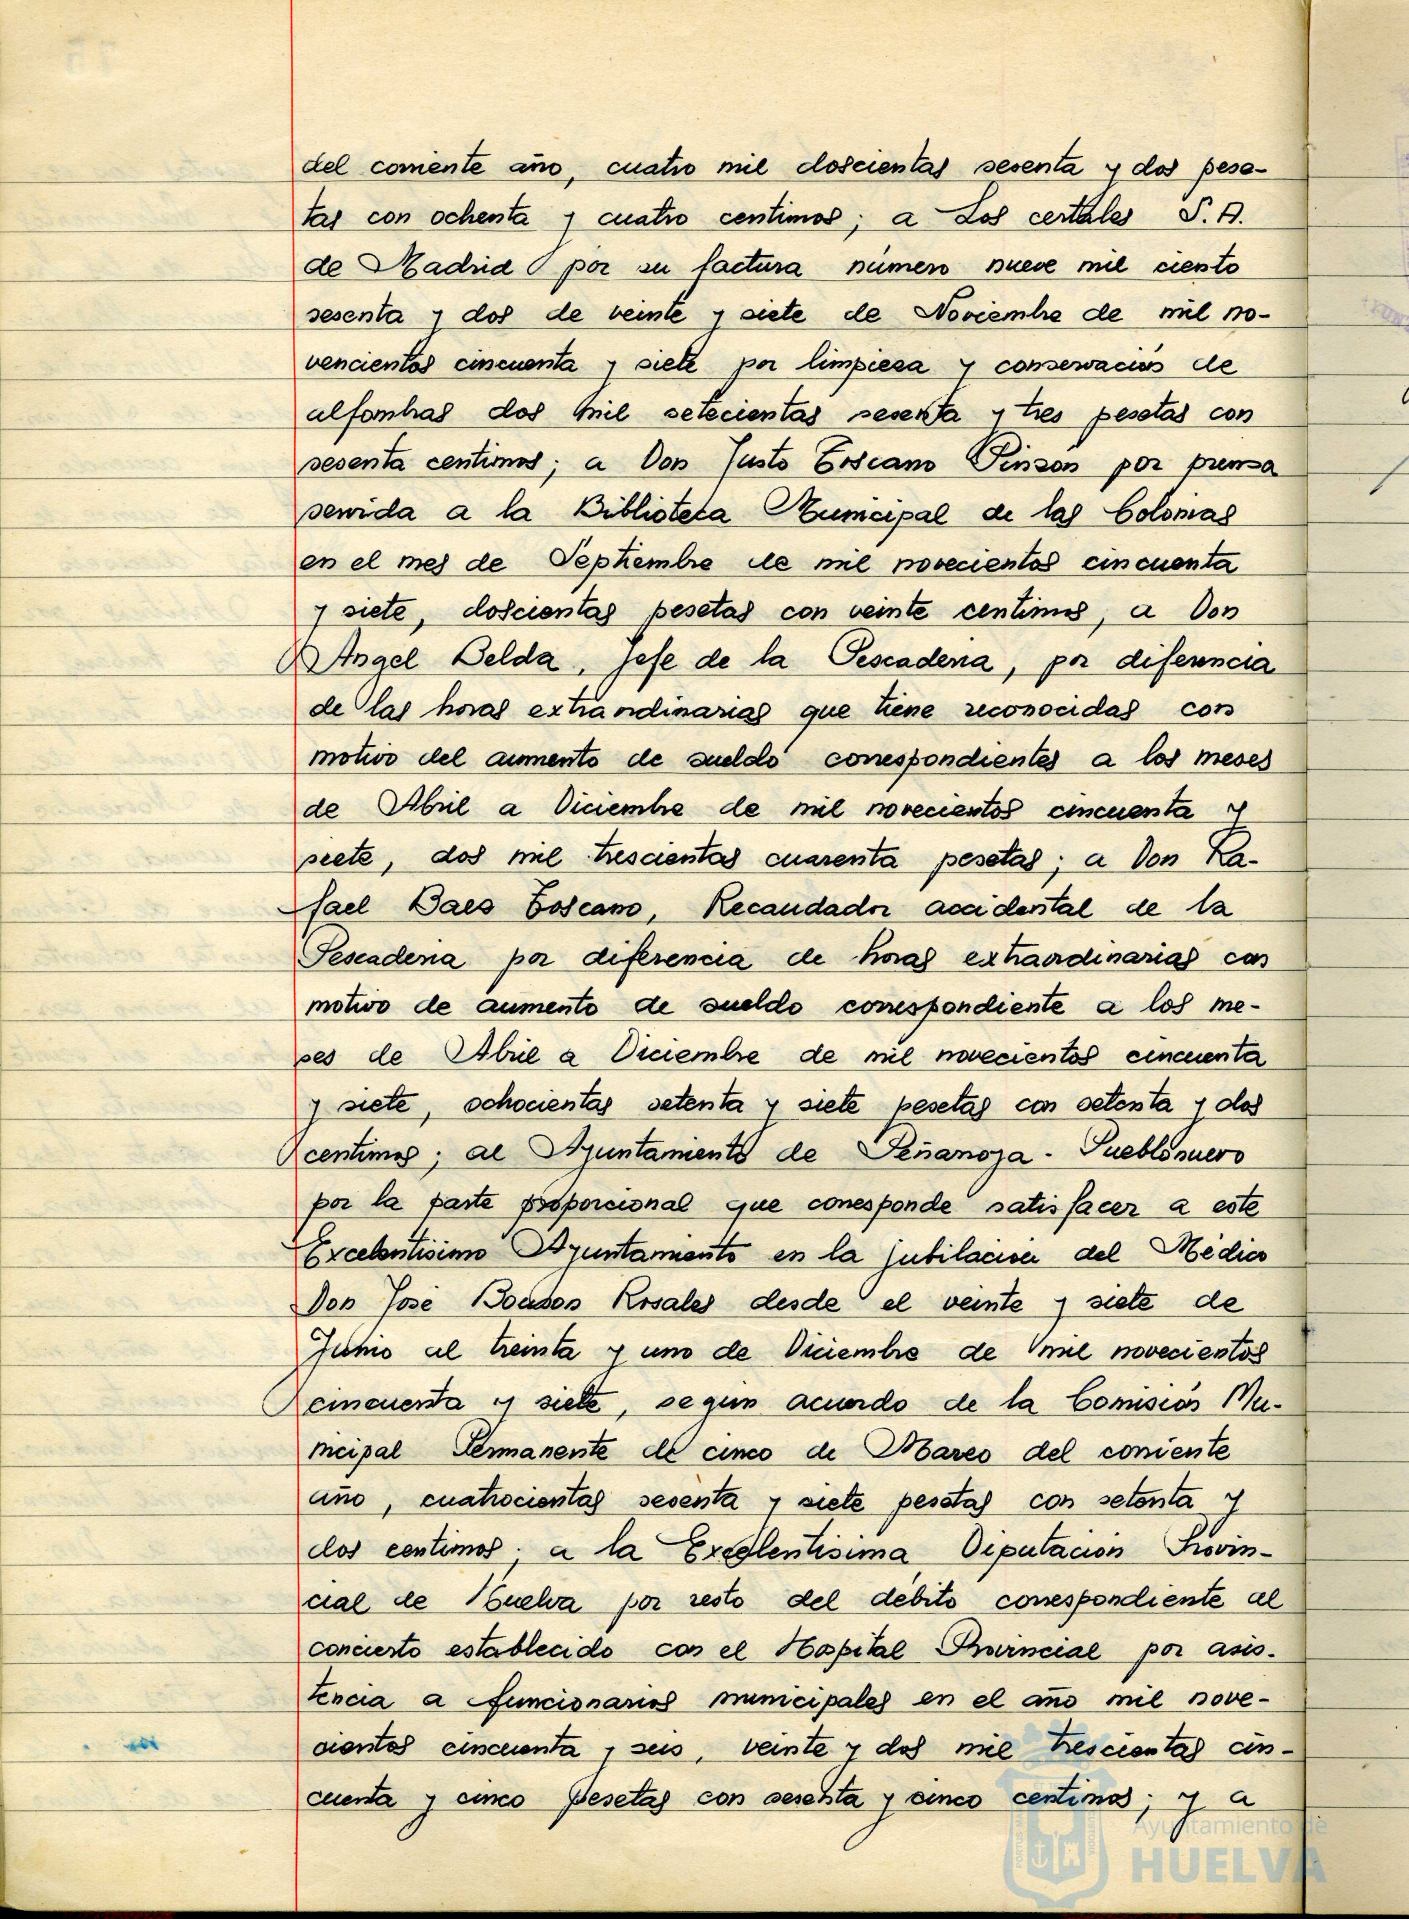 del corriente año, cuatro mil doscientas sesenta y dos pese-
tas con ochenta y cuatro centimos; a Los certales S.A.
de Madrid por su factura número nueve mil ciento
sesenta y dos de veinte y siete de Noviembre de mil no-
vencientos cincuenta y siete por limpieza y conservación de
alfombras dos mil setecientas sesenta y tres pesetas con
sesenta centimos; a Don Justo Toscano Pinzón por prensa
servida a la Biblioteca Municipal de las Colonias
en el mes de Septiembre de mil novecientos cincuenta
y siete, doscientas pesetas con veinte centimos, a Don
Angel Belda, Jefe de la Pescaderia, por diferencia
de las horas extraordinarias que tiene reconocidas con
motivo del aumento de sueldo correspondientes a los meses
de Abril a Diciembre de mil novecientos cincuenta y
siete, dos mil trescientas cuarenta pesetas; a Don Ra-
fael Baes Toscano, Recaudador accidental de la
Pescaderia por diferencia de horas extraordinarias con
motivo de aumento de sueldo correspondiente a los me-
ses de Abril a Diciembre de mil novecientos cincuenta
y siete, ochocientas setenta y siete pesetas con setenta y dos
centimos; al Ayuntamiento de Peñarroya-Pueblonuevo
por la parte proporcional que corresponde satisfacer a este
Excelentisimo Ayuntamiento en la jubilacion del Médico
Don José Rosales desde el veinte y siete de
Junio al treinta y uno de Diciembre de mil novecientos
cincuenta y siete, segun acuerdo de la Comisión Mu-
nicipal Permanente de cinco de Marzo del corriente
año, cuatrocientas sesenta y siete pesetas con setenta y
dos centimos; a la Excelentisima Diputacion Provin-
cial de Huelva por resto del débito correspondiente al
concierto establecido con el Hospital Provincial por asis-
tencia a funcionarios municipales en el año mil nove-
cientos cincuenta y seis, veinte y dos mil trescientas cin-
cuenta y cinco pesetas con sesenta y cinco centimos; y a
Ayuntamiento de
HUELVA